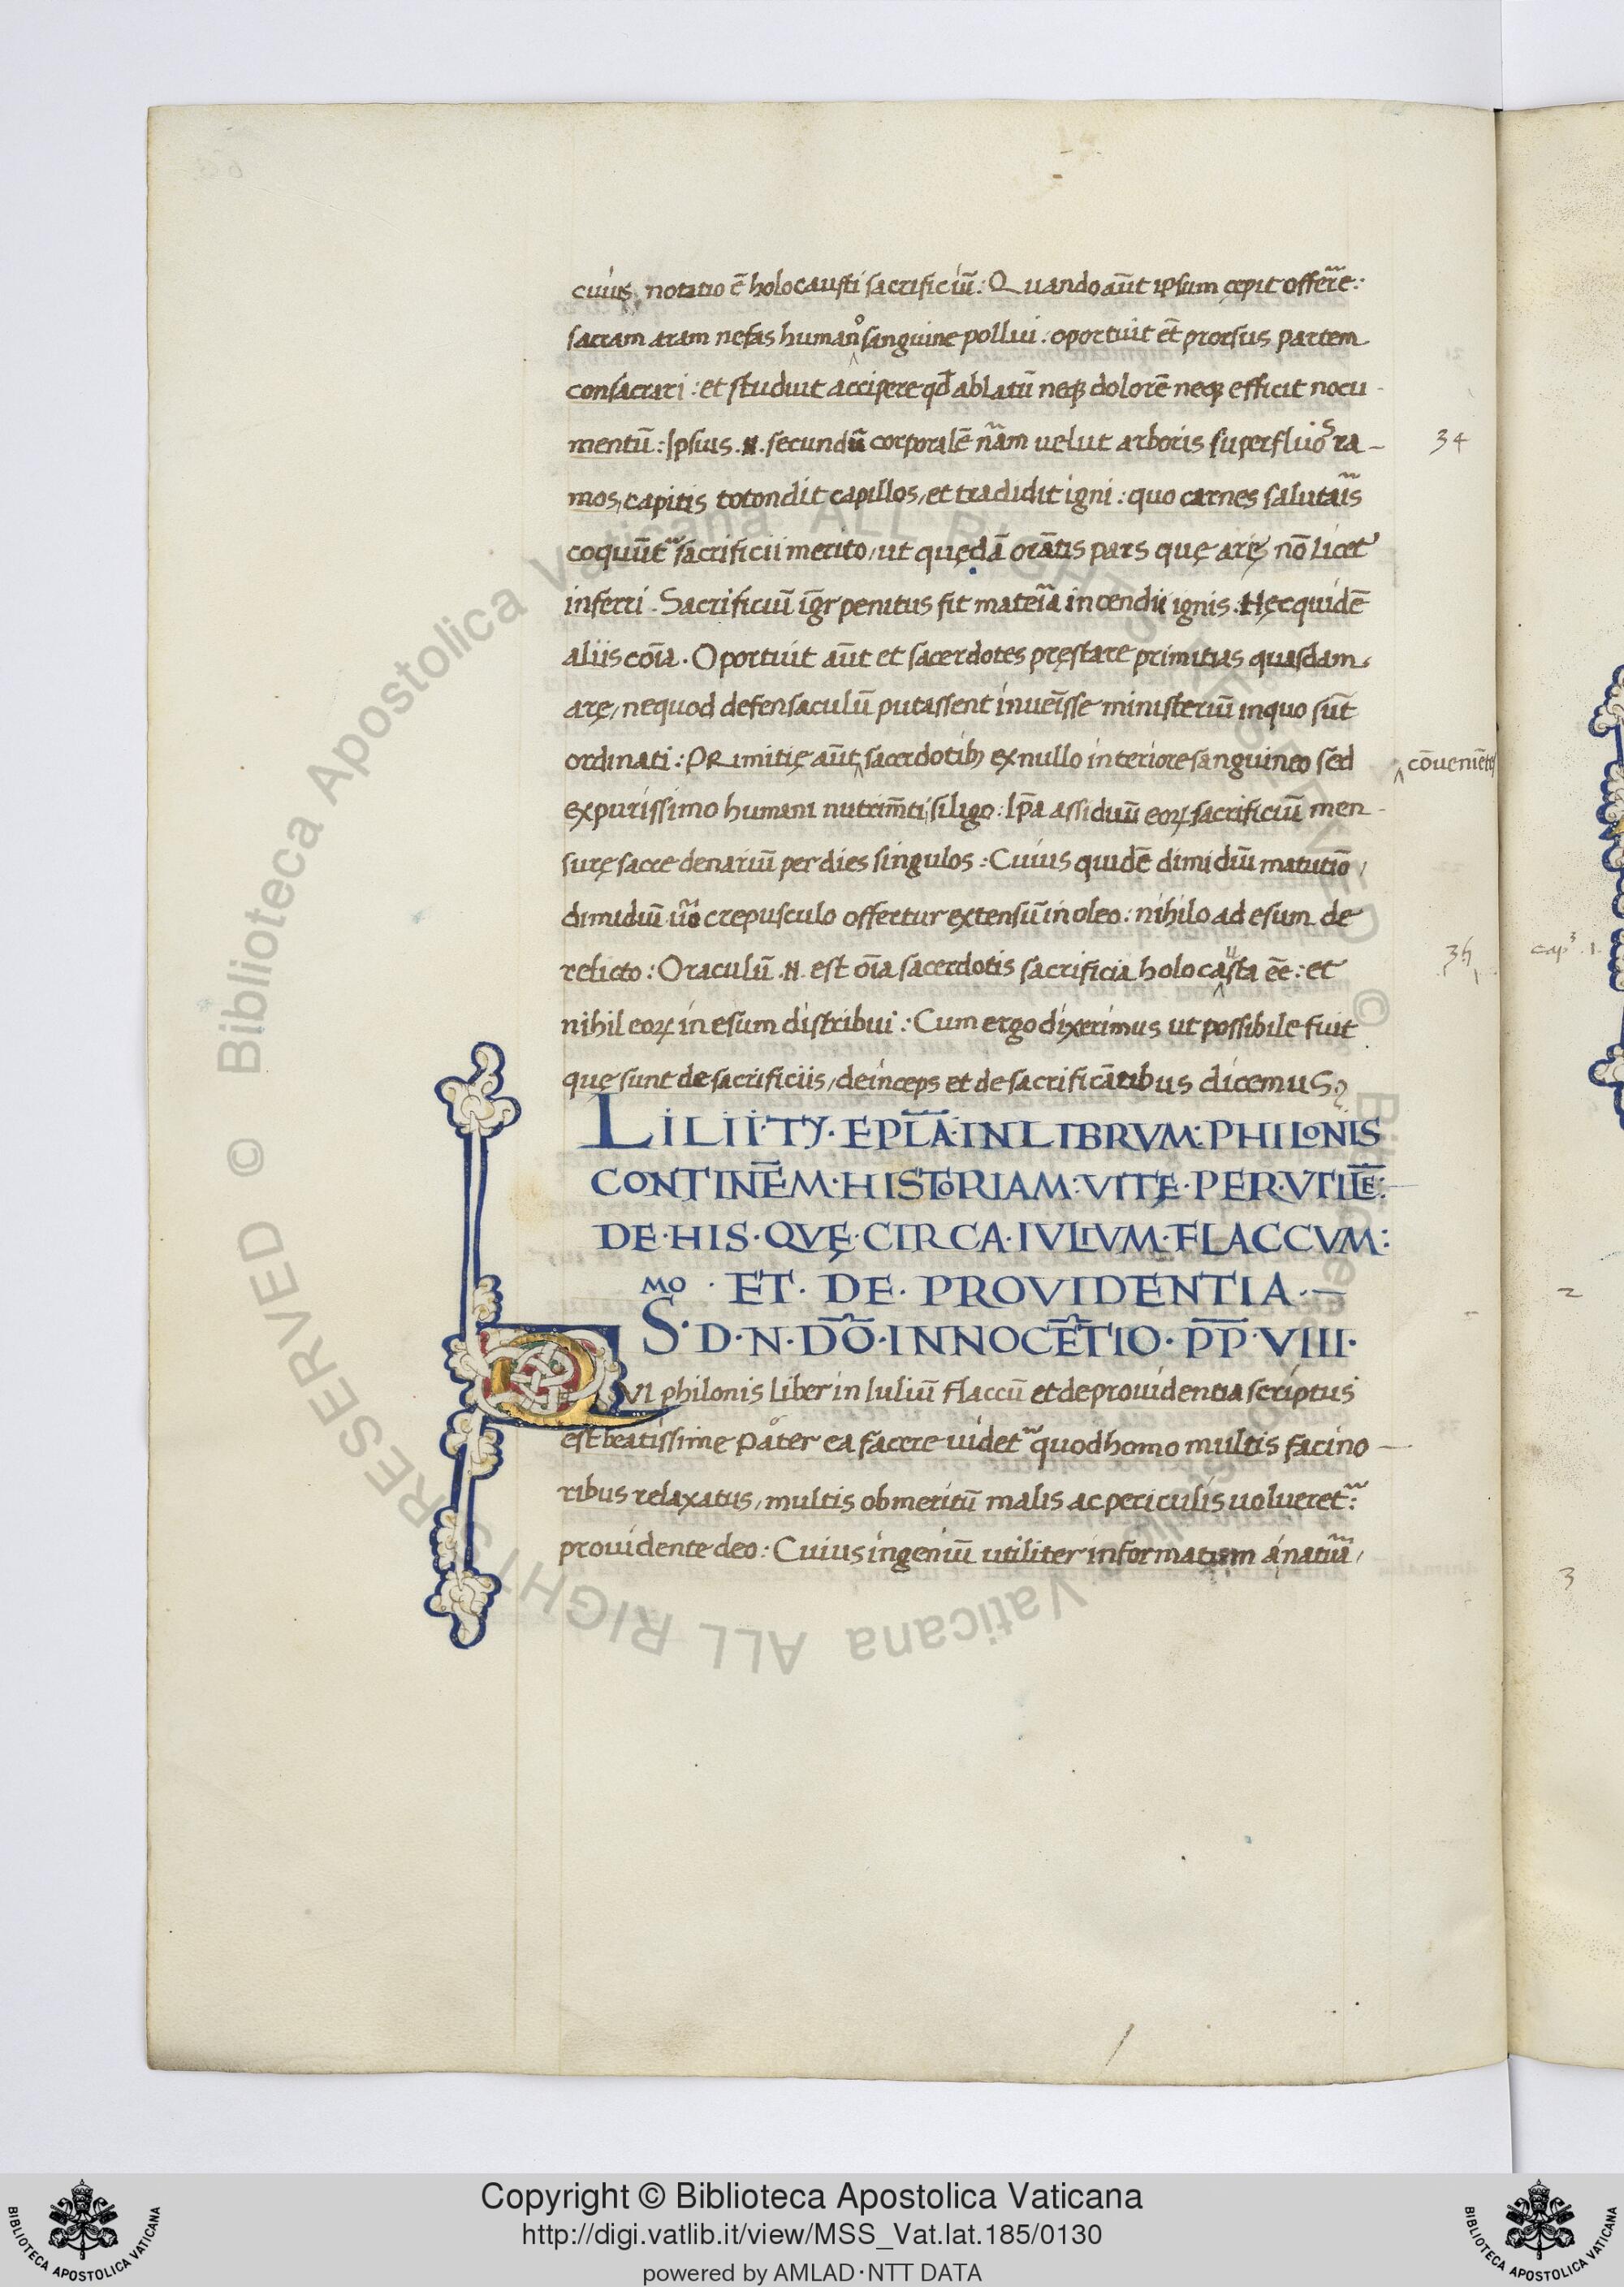 cuius notatio ē holocausti sacrificiū: Quando aūt ipsum cępit offerre:
sacram aram nefas humano sanguine pollui: oportuit et̄ prorsus partem
consacrari: et studuit accipere qđ ablatū neqꝫ dolorē neqꝫ efficit nocu-
mentū: Ipsius .N. secundū corporalē nām uelut arboris superfluos ra-
34
mos, capitis totondit capillos, et tradidit igni: quo carnes salutaīs
coquūt sacrificii merito, ut quędā orātis pars quę arię nō licet
inferri. Sacrificiū igr̄ penitus fit mateīa incendii ignis. Hęc quidē
aliis coīa. Oportuit aūt et sacerdotes pręstare primitias quasdam
arę, nequod defensaculū putassent inueīsse ministeriū inquo sūt
ordinati: PRimitię aūt sacerdotibꝫ ex nullo interiore sanguineo sed
cōueniētes
ex purissimo humani nutrim̄ti siligo: Ip̄a assiduū eoꝝ sacrificiū men-
surę sacre denariū per dies singulos: Cuius quidē dimidiū matutīo,
dimidiū ūo crepusculo offertur extensū in oleo: nihilo ad esum de
relicto: Oraculū .N. est oīa sacerdotis sacrificia holocausta eē: et
35
nihil eoꝝ in esum distribui: Cum ergo dixerimus ut possibile fuit
quę sunt de sacrificiis, deinceps et de sacrificātibus dicemus
LILII·TY·EPLA̅·IN LIBRVM:PHILONIS
CONTINE̅M·HISTORIAM:VITĘ·PER·VTILE̅:
DE·HIS·QVĘ·CIRCA·IVLIVM·FLACCVM:
·ET·DE·PROVIDENTIA·—
Sᴹᴼ·D·N·DO̅·INNOCE̅TIO·PP̅·VIII·
QVI philonis liber in Iuliū flaccū et de prouidentia scriptus
est beatissime Pater ea facere uidet quod homo multis facino-
ribus relaxatus, multis ob meritū malis ac periculis uolueret:
prouidente deo: Cuius ingeniū utiliter informatum a natuā,
cap. 1.
2
3
© Biblioteca Apostolica Vaticana ALL RIGHTS RESERVED © Biblioteca Apostolica Vaticana ALL RIGHTS RESERVED
BIBLIOTECA APOSTOLICA VATICANA
Copyright © Biblioteca Apostolica Vaticana
http://digi.vatlib.it/view/MSS_Vat.lat.185/0130
powered by AMLAD·NTT DATA
BIBLIOTECA APOSTOLICA VATICANA